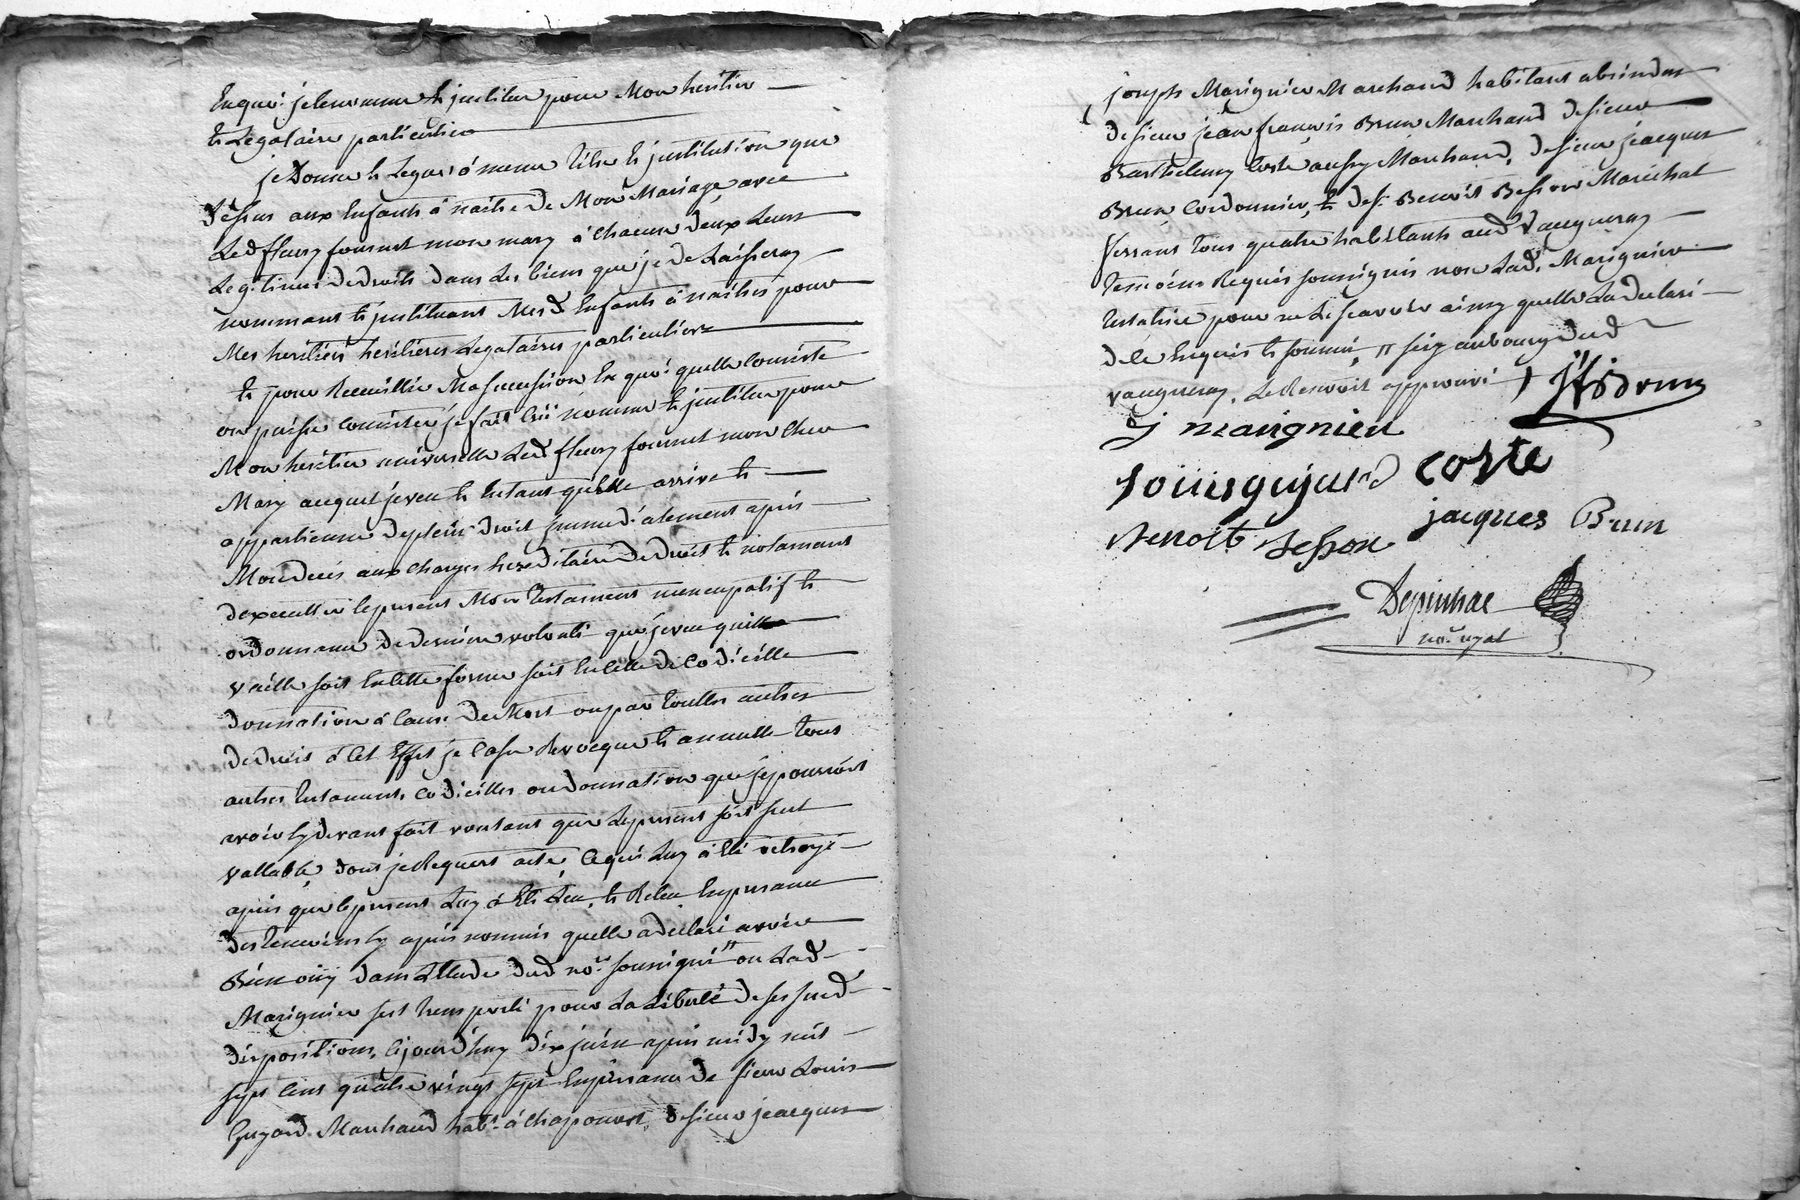 En quoi je le nomme et jnstitue pour Mon heritier
et Legataire particulier
je Donne et Legue á meme titre et jnstitution que
dessus aux Enfants á naitre de Mon Mariage avec
Led fleury fournet mon mary á chacun deux Leurs
Legitimes de droits dans Les biens que je de Laisseray
nommant et jnstituant Mesd Enfants á naitres pour
Mes heritiers heritieres Legataires particuliers
et pour Recueillir Ma succession En quoi quelle consiste
ou puisse consister je fait Crée nomme et jnstitue pour
Mon heritier universelle Led fleury fournet mon cher
Mary auquel je veu et Entant quelle arrive et
appartienne de plein droit jmmediatement après
Mon deces aux charges hereditaire de droit et notamant
dexecutter le present Mon testament nuncupatif et
ordonnance de derniere volonté que je veu quille
vaille soit En cette forme soit En celle de Codicille
donnation á Cause de Mort ou par toutte autres
de droit á Cet Effet je Casse Revoque et annulle tous
autres testaments, codicilles ou donnation que je pourrois
avoir cy devant fait voulant que le present soit seul
vallable, dont je Requert acte, Ce qui Luy á Eté octroyé
après que le present Luy á Eté Leu, et Releu En presance
des temoins Cy après nommés quelle a declaré avoir
Bien ouy dans L'Etude dud nore soussigné " ou Lad
Marignier sest transporté pour La Liberté de ses sud
dispositions, Cejourdhuy dix juin après midy mil
sept Cent quatre vingt sept En presance de sieur Louis
Guyard Marchand habt á Chaponost, de sieur jeacques
joseph Marignier Marchand habitant
de sieur jean françois Brun Marchand de sieur
Barthelemy Coste aussy Marchand, de sieur jeacques
Brun Cordonnier, et de sr Benoit Besson Maréchal
ferrant tous quatre habitants aud Vaugneray
temoins Requis soussignés non Lad. Marignier
testatrice pour ne Le scavoir ainsy quelle La declaré
de ce Enquis et sommé, " sciz au bourg dud
vaugneray, Le Renvoit approuvé
Jf Brun
j marignier
Louis guyard coste
jacques Brun
Benoit Besson
Depinhac
nore royal